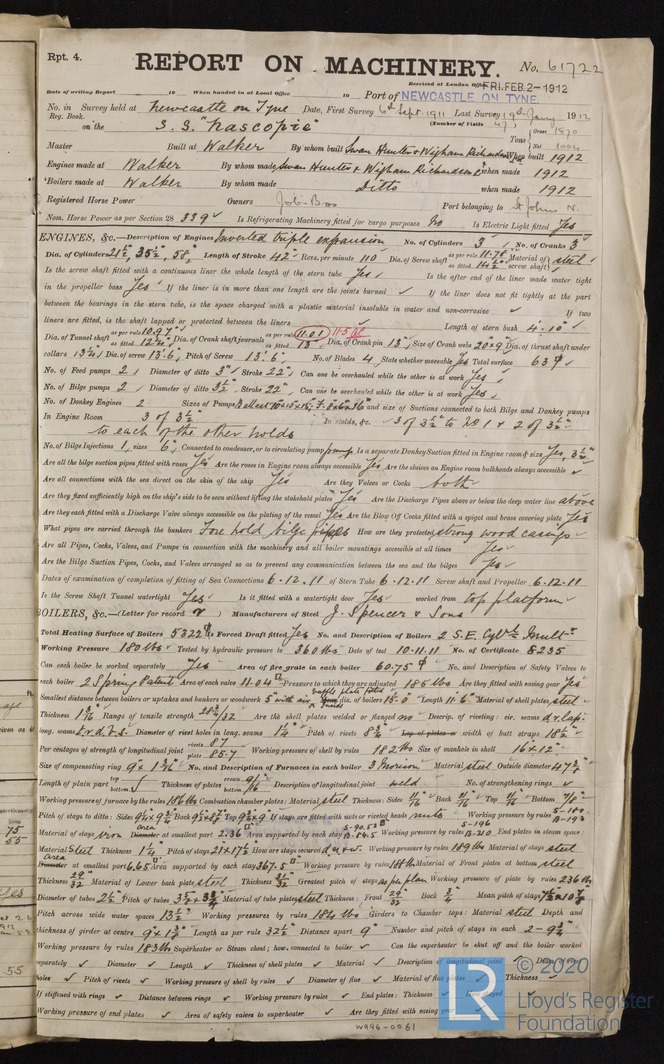 Rpt. 4.
REPORT ON MACHINERY. No. 61722
Received at London Office FRI. FEB. 2-1912
Date of writing Report 19 When handed in at Local Office 19 Port of NEWCASTLE ON TYNE
No. in Survey held at Newcastle on Tyne Date, First Survey 6th Sept. 1911 Last Survey 19th Jany 1912
Reg. Book. (Number of Visits 47)
on the S.S. "Nascopie" Tons Gross 1870 Net 1004
Master Built at Walker By whom built Swan Hunter & Wigham Richardson When built 1912
Engines made at Walker By whom made Swan Hunter & Wigham Richardson when made 1912
Boilers made at Walker By whom made Ditto when made 1912
Registered Horse Power Owners Job Bros Port belonging to St John's N.
Nom. Horse Power as per Section 28 339 Is Refrigerating Machinery fitted for cargo purposes No Is Electric Light fitted Yes
ENGINES, &c.—Description of Engines Inverted triple expansion No. of Cylinders 3 No. of Cranks 3
Dia. of Cylinders 21½, 35½, 58 Length of Stroke 42" Revs. per minute 110 Dia. of Screw shaft as per rule 11.76 as fitted 14½ Material of screw shaft steel
Is the screw shaft fitted with a continuous liner the whole length of the stern tube Yes Is the after end of the liner made water tight
in the propeller boss Yes If the liner is in more than one length are the joints burned If the liner does not fit tightly at the part
between the bearings in the stern tube, is the space charged with a plastic material insoluble in water and non-corrosive If two
liners are fitted, is the shaft lapped or protected between the liners Length of stern bush 4'-10"
Dia. of Tunnel shaft as per rule 10.97 as fitted 12¾ Dia. of Crank shaft journals as per rule 11.01 11.516 as fitted 13 Dia. of Crank pin 13 Size of Crank webs 20×9 Dia. of thrust shaft under
collars 13¼ Dia. of screw 13'.6" Pitch of Screw 13'.6" No. of Blades 4 State whether moveable Yes Total surface 63
No. of Feed pumps 2 Diameter of ditto 3" Stroke 22" Can one be overhauled while the other is at work Yes
No. of Bilge pumps 2 Diameter of ditto 3½ Stroke 22" Can one be overhauled while the other is at work Yes
No. of Donkey Engines 2 Sizes of Pumps and size of Suctions connected to both Bilge and Donkey pumps
In Engine Room 3 of 3½" In Holds, &c. 3 of 3½" to No 1 & 2 of 3½"
to each of the other holds
No. of Bilge Injections 1 sizes 6" Connected to condenser, or to circulating pump pump Is a separate Donkey Suction fitted in Engine room & size Yes, 3½"
Are all the bilge suction pipes fitted with roses Yes Are the roses in Engine room always accessible Yes Are the sluices on Engine room bulkheads always accessible
Are all connections with the sea direct on the skin of the ship Yes Are they Valves or Cocks both
Are they fixed sufficiently high on the ship's side to be seen without lifting the stokehold plates Yes Are the Discharge Pipes above or below the deep water line above
Are they each fitted with a Discharge Valve always accessible on the plating of the vessel Yes Are the Blow Off Cocks fitted with a spigot and brass covering plate Yes
What pipes are carried through the bunkers Fore hold bilge pipes How are they protected strong wood casings
Are all Pipes, Cocks, Valves, and Pumps in connection with the machinery and all boiler mountings accessible at all times Yes
Are the Bilge Suction Pipes, Cocks, and Valves arranged so as to prevent any communication between the sea and the bilges Yes
Dates of examination of completion of fitting of Sea Connections 6.12.11 of Stern Tube 6.12.11 Screw shaft and Propeller 6.12.11
Is the Screw Shaft Tunnel watertight Yes Is it fitted with a watertight door Yes worked from top platform
BOILERS, &c.—(Letter for record r) Manufacturers of Steel J. Spencer & Sons
Total Heating Surface of Boilers 5322 Is Forced Draft fitted Yes No. and Description of Boilers 2 S.E. Cyl. Mult.
Working Pressure 180 lbs Tested by hydraulic pressure to 360 lbs Date of test 10.11.11 No. of Certificate 8235
Can each boiler be worked separately Yes Area of fire grate in each boiler 60.75 No. and Description of Safety Valves to
each boiler 2 Spring Patent Area of each valve 11.04 Pressure to which they are adjusted 185 lbs Are they fitted with easing gear Yes
Smallest distance between boilers or uptakes and bunkers or woodwork 5" with air baffle plate fitted Dia. of boilers 15'.0" Length 11'.6" Material of shell plates steel
Thickness 1 3/16 Range of tensile strength 28½/32 Are the shell plates welded or flanged no Descrip. of riveting: cir. seams d.r. lap.
long. seams t.r.d.b.s. Diameter of rivet holes in long. seams 1¼ Pitch of rivets 8¾ width of butt straps 18½
Per centages of strength of longitudinal joint rivets 87 plate 85.7 Working pressure of shell by rules 182 lbs Size of manhole in shell 16×12
Size of compensating ring 9" × 1 3/16 No. and Description of Furnaces in each boiler 3 Morison Material steel Outside diameter 47¾
Length of plain part top bottom Thickness of plates crown bottom 9/16 Description of longitudinal joint weld No. of strengthening rings
Working pressure of furnace by the rules 186 lbs Combustion chamber plates: Material steel Thickness: Sides 11/16 Back 11/16 Top 11/16 Bottom 7/8
Pitch of stays to ditto: Sides Back Top If stays are fitted with nuts or riveted heads nuts Working pressure by rules
Material of stays iron area at smallest part 2.36 Area supported by each stay Working pressure by rules End plates in steam space:
Material steel Thickness 1¼ Pitch of stays 21×17½ How are stays secured d.n.w. Working pressure by rules 189 lbs Material of stays steel
area at smallest part 6.65 Area supported by each stay 367.5 Working pressure by rules 188 lbs Material of Front plates at bottom steel
Thickness 29/32 Material of Lower back plate steel Thickness 31/32 Greatest pitch of stays as per plan Working pressure of plate by rules 236 lbs
Diameter of tubes 2½ Pitch of tubes Material of tube plates steel Thickness: Front 29/32 Back ¾ Mean pitch of stays
Pitch across wide water spaces 13½ Working pressures by rules 184 lbs Girders to Chamber tops: Material steel Depth and
thickness of girder at centre 9" × 1¾ Length as per rule 32½ Distance apart 9" Number and pitch of stays in each 2 - 9¾
Working pressure by rules 183 lbs Superheater or Steam chest; how connected to boiler Can the superheater be shut off and the boiler worked
separately Diameter Length Thickness of shell plates Material Description of longitudinal joint Diam. of rivet
holes Pitch of rivets Working pressure of shell by rules Diameter of flue Material of flue plates Thickness
If stiffened with rings Distance between rings Working pressure by rules End plates: Thickness How stayed
Working pressure of end plates Area of safety valves to superheater Are they fitted with easing gear
W996-0061
© 2020
Lloyd's Register
Foundation
LR
75
55
Yes
55